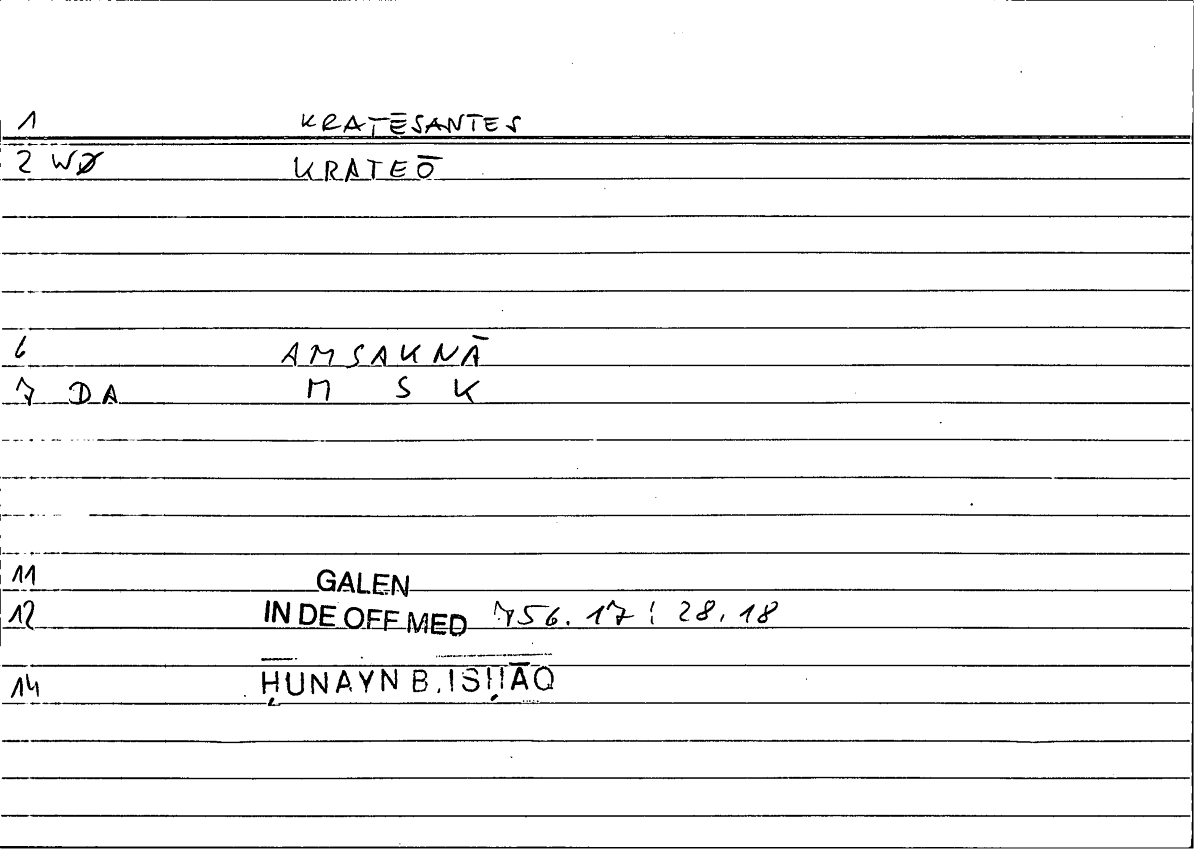 1 KRATĒSANTES
2 WØ KRATEŌ
6 AMSAKNĀ
7 DA M S K
11 GALEN
12 IN DE OFF MED 756.17 ; 28.18
14 ḤUNAYN B. ISḤĀQ